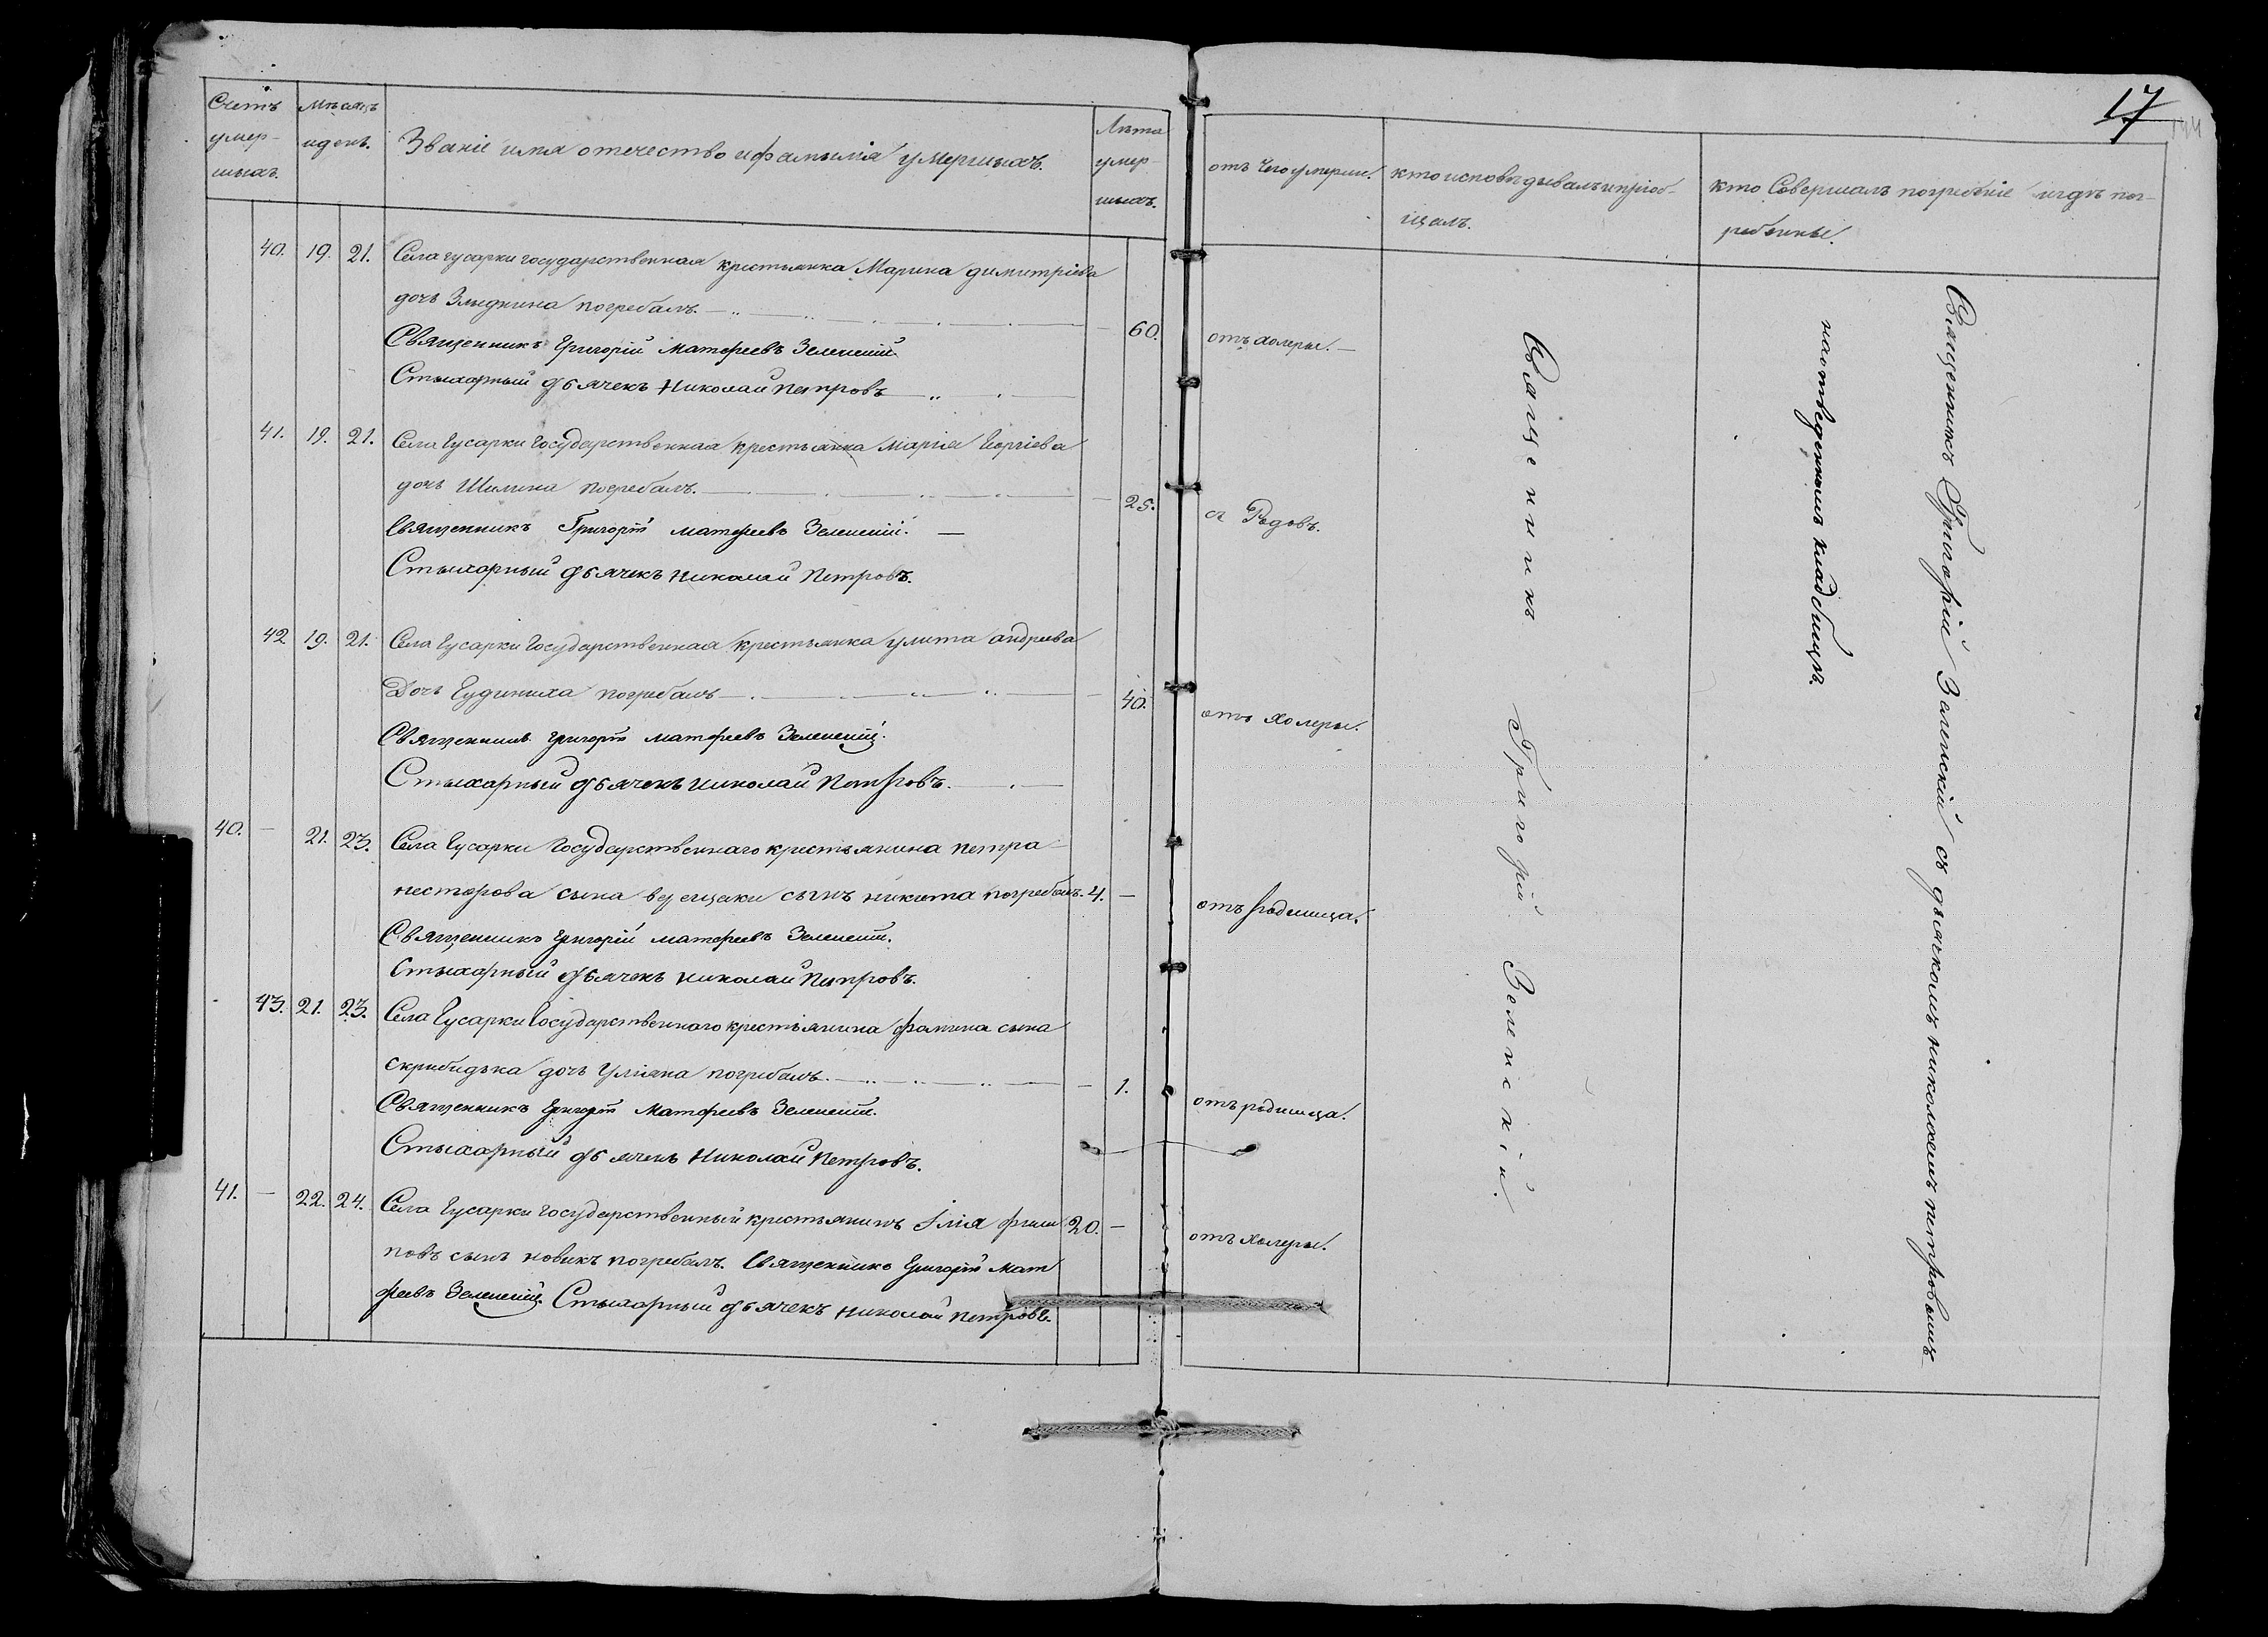 Счетъ
умер-
шихъ.
Мѣсяцъ
и день.
Званіе имя отечество и фамилія умершихъ.
Лѣта
умер-
шихъ.
отъ чего умерли.
кто исповѣдывалъ и пріоб-
щалъ.
кто Совершалъ погребеніе и гдѣ пог-
ребенны.
17
40. 19. 21. Села гусарки государственная крестьянка Марина димитріева
дочь Злыднина погребалъ.
60. отъ холеры.
Священникъ Григорій Матфеевъ Зеленский
Стыхарный дьячекъ Николай Петровъ
41. 19. 21. Села Гусарки Государственная крестьянка Марія Георгіева
дочь Шилина погребалъ.
25. съ Родовъ.
Священникъ Григорій Матфеевъ Зеленский.
Стыхарный дьячекъ Николай Петровъ.
42 19. 21. Села Гусарки Государственная крестьянка улита андреева
Дочь Гудиниха погребалъ
40. отъ холеры.
Священникъ Григорій Матфеевъ Зеленский.
Стыхарный дьячекъ Николай Петровъ.
40. — 21. 23. Села Гусарки Государственнаго крестьянина петра
несторова сына верещаки сынъ никита погребалъ. 4. — отъ родимца.
Священникъ Григорій Матфеевъ Зеленский.
Стыхарный дьячекъ Николай Петровъ.
43. 21. 23. Села Гусарки Государственнаго крестьянина фомина сына
скрибидька дочь Уліяна погребалъ. — 1. отъ родимца.
Священникъ Григорій Матфеевъ Зеленский.
Стыхарный дьячекъ Николай Петровъ.
41. — 22. 24. Села Гусарки государственный крестьянинъ Ілія фили 20. — отъ холеры.
повъ сынъ новикъ погребалъ. Священникъ Григорій Мат
феевъ Зеленский. Стыхарный дьячекъ Николай Петровъ.
Священникъ Григорій Зеленскій.
Священникъ Григорій Зеленскій съ дьячкомъ николаемъ петровымъ
на отведенномъ кладбищѣ.